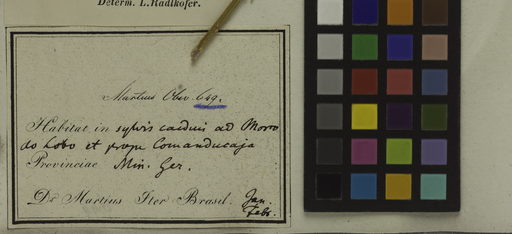 Determ. L. Radlkofer.
Martius Obs. 649.
Habitat in sylvis caeduis ad Morro
do Lobo et prope Comanducaja
Provinciae Min. Ger.
Dr Martius Iter Brasil. Jan.
Febr.